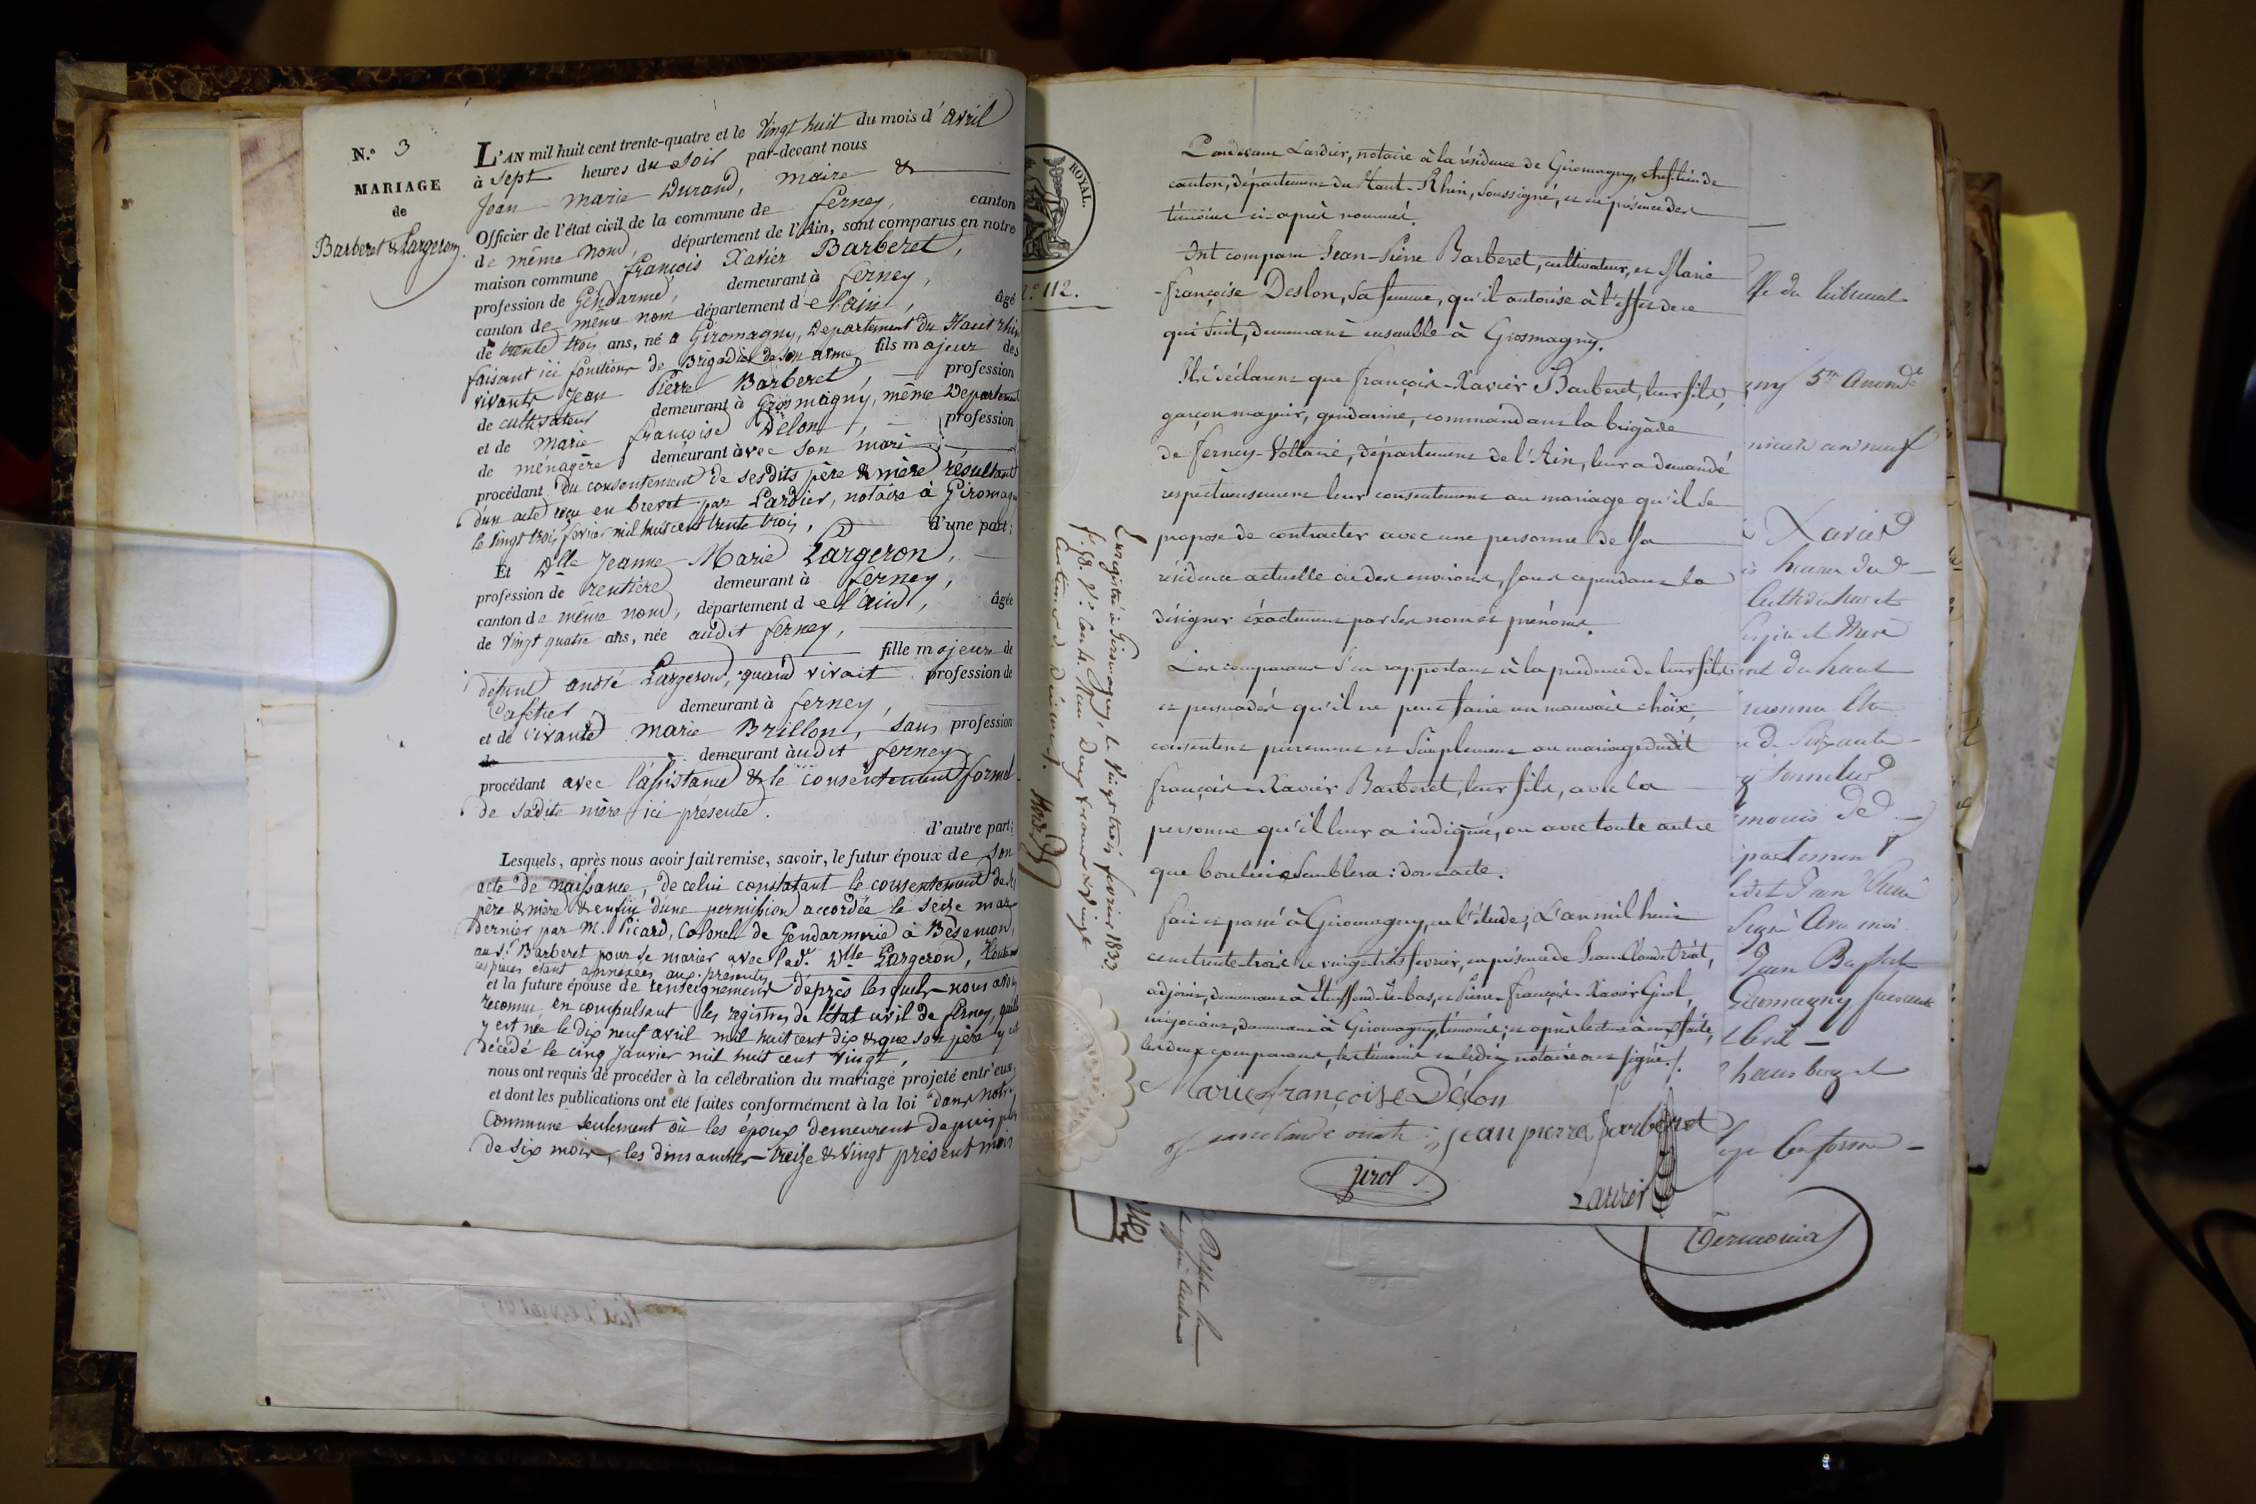 N.° 3
MARIAGE
de
Barberet & Largeron.
L'AN mil huit cent trente-quatre et le Vingt huit du mois d'avril
à sept heures du soir par-devant nous
Jean Marie Durand, maire &
Officier de l'état civil de la commune de ferney, canton
de même nom, département de l'Ain, sont comparus en notre
maison commune françois Xavier Barberet,
profession de Gendarme, demeurant à ferney,
canton de même nom département de l'ain, âgé
de trente trois ans, né à Giromagny, Departement du Haut rhin
faisant ici fonctions de Brigadier de son arme, fils majeur des
vivants Jean Pierre Barberet, profession
de cultivateur demeurant à Grosmagny, même Departement
et de Marie françoise Delon, profession
de ménagère demeurant avec son mari
procédant du consentement de sesdits père & mère résultant
d'un acte reçu en brevet par Lardier, notaire à Giromagny
le vingt trois fevrier mil huit cent trente trois, d'une part;
Et Dlle Jeanne Marie Largeron,
profession de rentière demeurant à ferney,
canton de même nom, département de l'ain, âgée
de vingt quatre ans, née audit ferney,
fille majeure de
défunt andré Largeron, quand vivait profession de
Cafetier demeurant à ferney,
et de vivante marie Brillon, sans profession
demeurant audit ferney
procédant avec l'assistance & le consentement formel
de sadite mère ici présente.
d'autre part;
Lesquels, après nous avoir fait remise, savoir, le futur époux de son
acte de naissance, de celui constatant le consentement de ses
père & mère & enfin d'une permission accordée le seize mars
dernier par M. Picard, Colonel de Gendarmerie à Besançon,
au Sr. Barberet pour se marier avec lad. Dlle Largeron,
ces pièces étant annexées aux présentes
et la future épouse de renseignements d'après lesquels nous avons
reconnu en compulsant les registres de l'état civil de ferney, qu'elle
y est née le dix neuf avril mil huit cent dix & que son père y est
décédé le cinq Janvier mil huit cent vingt,
nous ont requis de procéder à la célébration du mariage projeté entr'eux,
et dont les publications ont été faites conformément à la loi dans notre
Commune seulement où les époux demeurent depuis plus
de six mois, les dimanches treize & vingt présent mois
ROYAL.
112.
Pardevant Lardier, notaire à la résidence de Giromagny, chef-lieu de
canton, département du Haut-Rhin, soussigné, et en présence des
témoins ci-après nommés.
Ont comparu Jean-Pierre Barberet, cultivateur, et Marie
-françoise Deslon, sa femme, qu'il autorise à l'effet de ce
qui suit, demeurant ensemble à Grosmagny.
Ils déclarent que françois-Xavier Barberet, leur fils,
garçon majeur, gendarme, commandant la brigade
de ferney-Voltaire, département de l'Ain, leur a demandé
respectueusement leur consentement au mariage qu'il se
propose de contracter avec une personne de sa
résidence actuelle ou des environs, sans cependant la
désigner exactement par ses nom et prénoms.
Les comparans s'en rapportant à la prudence de leur fils
et persuadés qu'il ne peut faire un mauvais choix,
consentent purement et simplement au mariage dudit
françois-Xavier Barberet, leur fils, avec la
personne qu'il leur a indiquée, ou avec toute autre
que bon lui semblera : dont acte.
fait et passé à Giromagny, en l'étude, L'an mil huit
cent trente-trois le vingt-trois fevrier, en présence de Jean-Claude Oriat,
adjoint, demeurant à Etueffond-le-bas, et Pierre-françois-Xavier Girol,
négociant, demeurant à Giromagny, témoins; et après lecture à eux faite,
les deux comparans, les témoins et ledit notaire ont signé./.
Marie françoise Délon
jean claude oriat jean pierre barberet
girol
Lardier
Enregistré à Giromagny, le vingt trois fevrier 1833
f. 98. Vo. Cas 4. Reçu Deux francs & vingt
centimes décime.
ffe du tribunal
Xavier
Cultivateur et
père et Mère
du haut
de soixante
Signé avec moi
Jean Baptiste
Giromagny